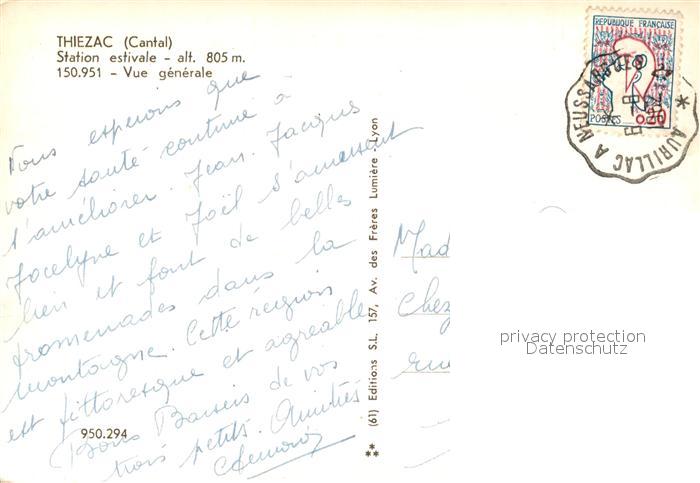 THIEZAC (Cantal)
Station estivale - alt. 805 m.
150.951 - Vue générale
Nous esperons que
votre santé continue à
s'améliorer. Jean. Jacques
Jocelyne et Joël s'amusent
bien et font de belles
promenades dans la
montagne. Cette région
est pittoresque et agréable
Bons Baisers de vos
trois petits. Amitiés
950.294
** (61) Editions S.L. 157, Av. des Frères Lumière - Lyon
REPUBLIQUE FRANÇAISE
POSTES 0,20
AURILLAC A NEUSSARGUES
Mad
Chez
rue
privacy protection
Datenschutz